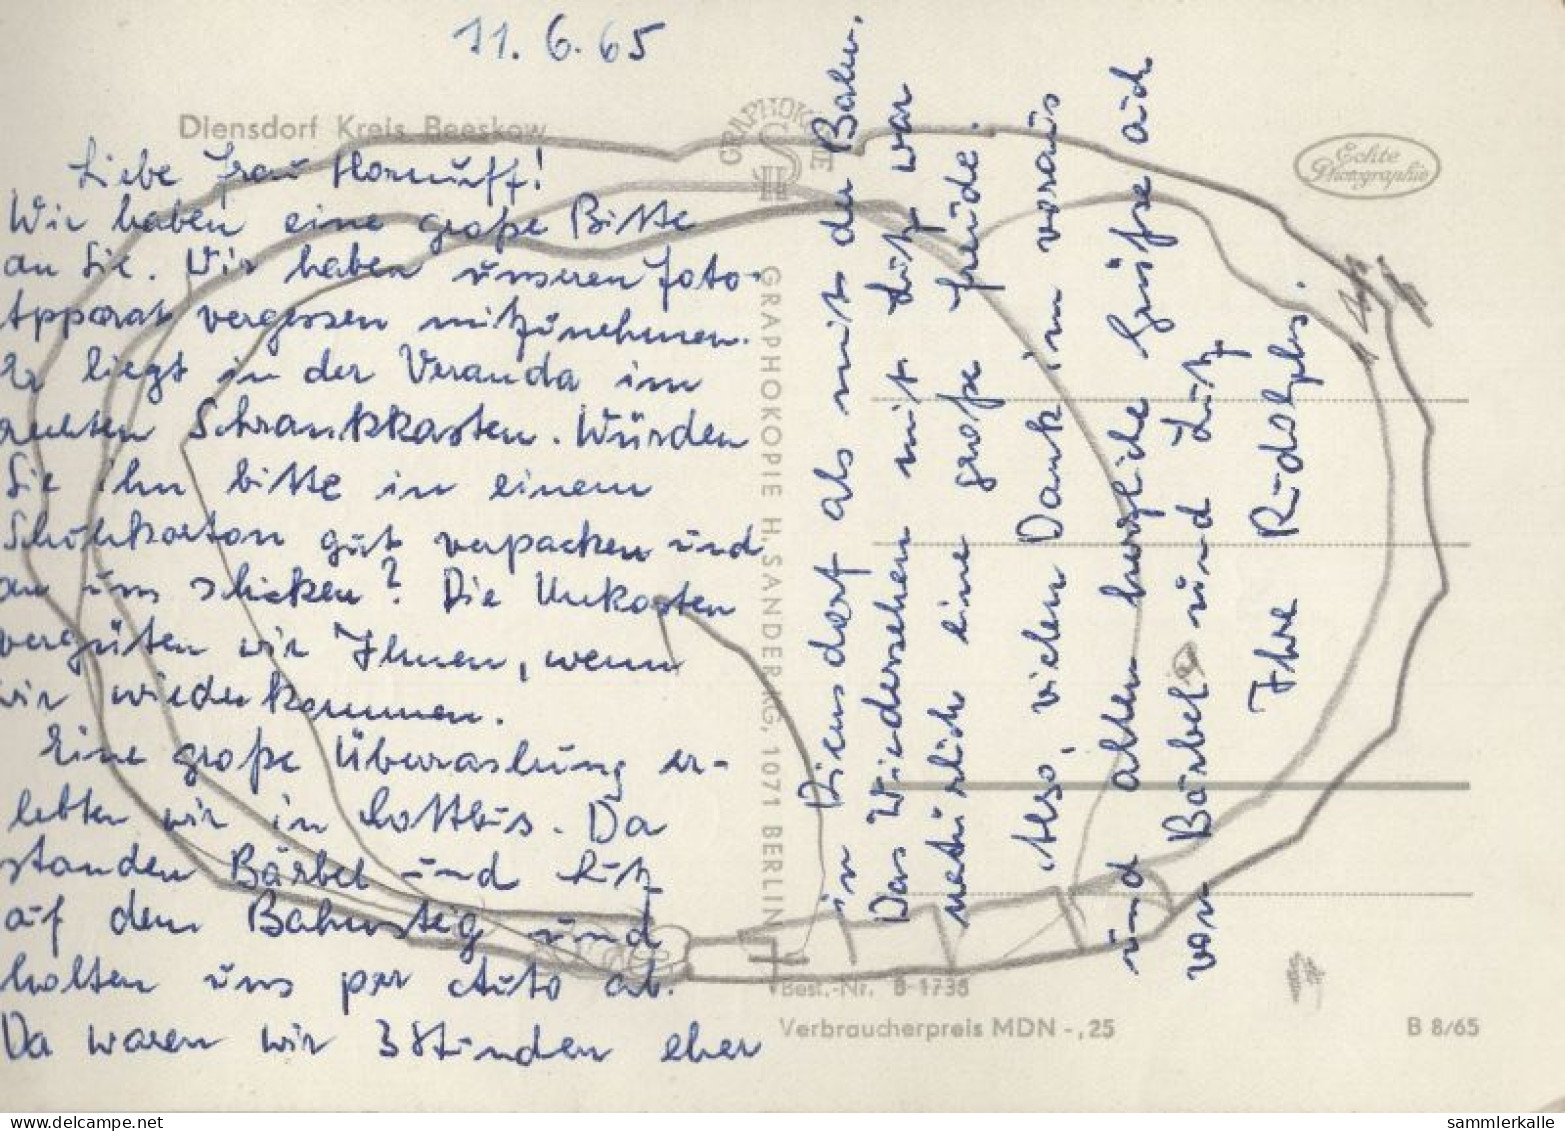 11.6.65
Diensdorf Kreis Beeskow
Liebe Frau Hornuff!
Wir haben eine große Bitte
an Sie. Wir haben unseren Foto-
Apparat vergessen mitzunehmen.
Er liegt in der Veranda im
rechten Schrankkasten. Würden
Sie ihn bitte in einem
Schuhkarton gut verpacken und
an uns schicken? Die Unkosten
vergüten wir Ihnen, wenn
wir wiederkommen.
Eine große Überraschung er-
lebten wir in Cottbus. Da
standen Bärbel und Lutz
auf dem Bahnsteig und
holten uns per Auto ab.
Da waren wir 3 Stunden eher
in Diensdorf als mit der Bahn.
Das Wiedersehen mit Lutz war
natürlich eine große Freude.
Also, vielen Dank im voraus
und allen herzliche Grüße auch
von Bärbel und Lutz
Ihre Rudolphs.
GRAPHOKOPIE
H
S
GRAPHOKOPIE H. SANDER KG, 1071 BERLIN
Echte
Photographie
Best.-Nr. B 1738
Verbraucherpreis MDN -,25
B 8/65
delcampe.net
sammlerkalle